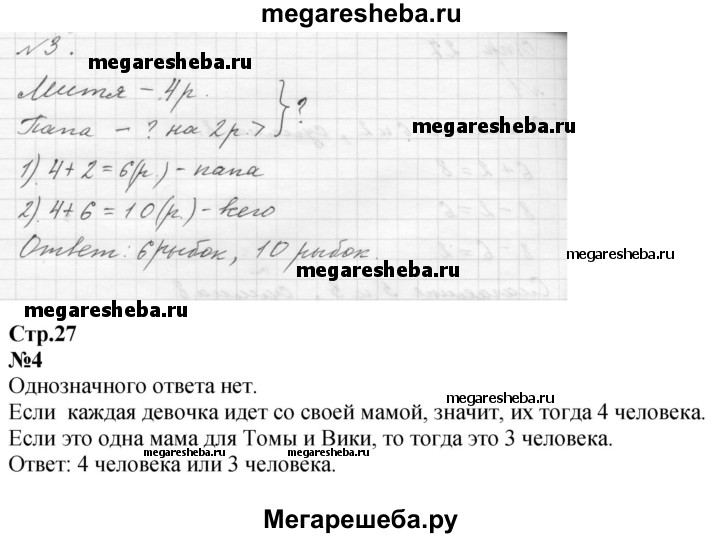 megaresheba.ru
№3.
megaresheba.ru
Митя – 4р.
Папа – ? на 2р.> } ?
megaresheba.ru
1) 4+2=6(р.) – папа
2) 4+6=10(р.) – всего
Ответ: 6 рыбок, 10 рыбок.
megaresheba.ru
megaresheba.ru
megaresheba.ru
Стр.27
№4
Однозначного ответа нет.
megaresheba.ru
Если каждая девочка идет со своей мамой, значит, их тогда 4 человека.
Если это одна мама для Томы и Вики, то тогда это 3 человека.
megaresheba.ru
megaresheba.ru
Ответ: 4 человека или 3 человека.
Мегарешеба.ру